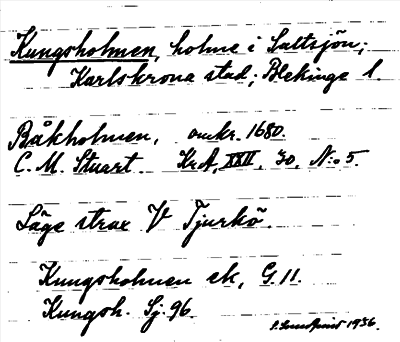 Kungsholmen, holme i Saltsjön;
Karlskrona stad; Blekinge l.
Båkholmen, omkr. 1680.
C. M. Stuart. KrA, XXII, 30, N:o 5.
Läge strax V Tjurkö.
Kungsholmen ek, G. 11.
Kungsh. Sj. 96.
1936.